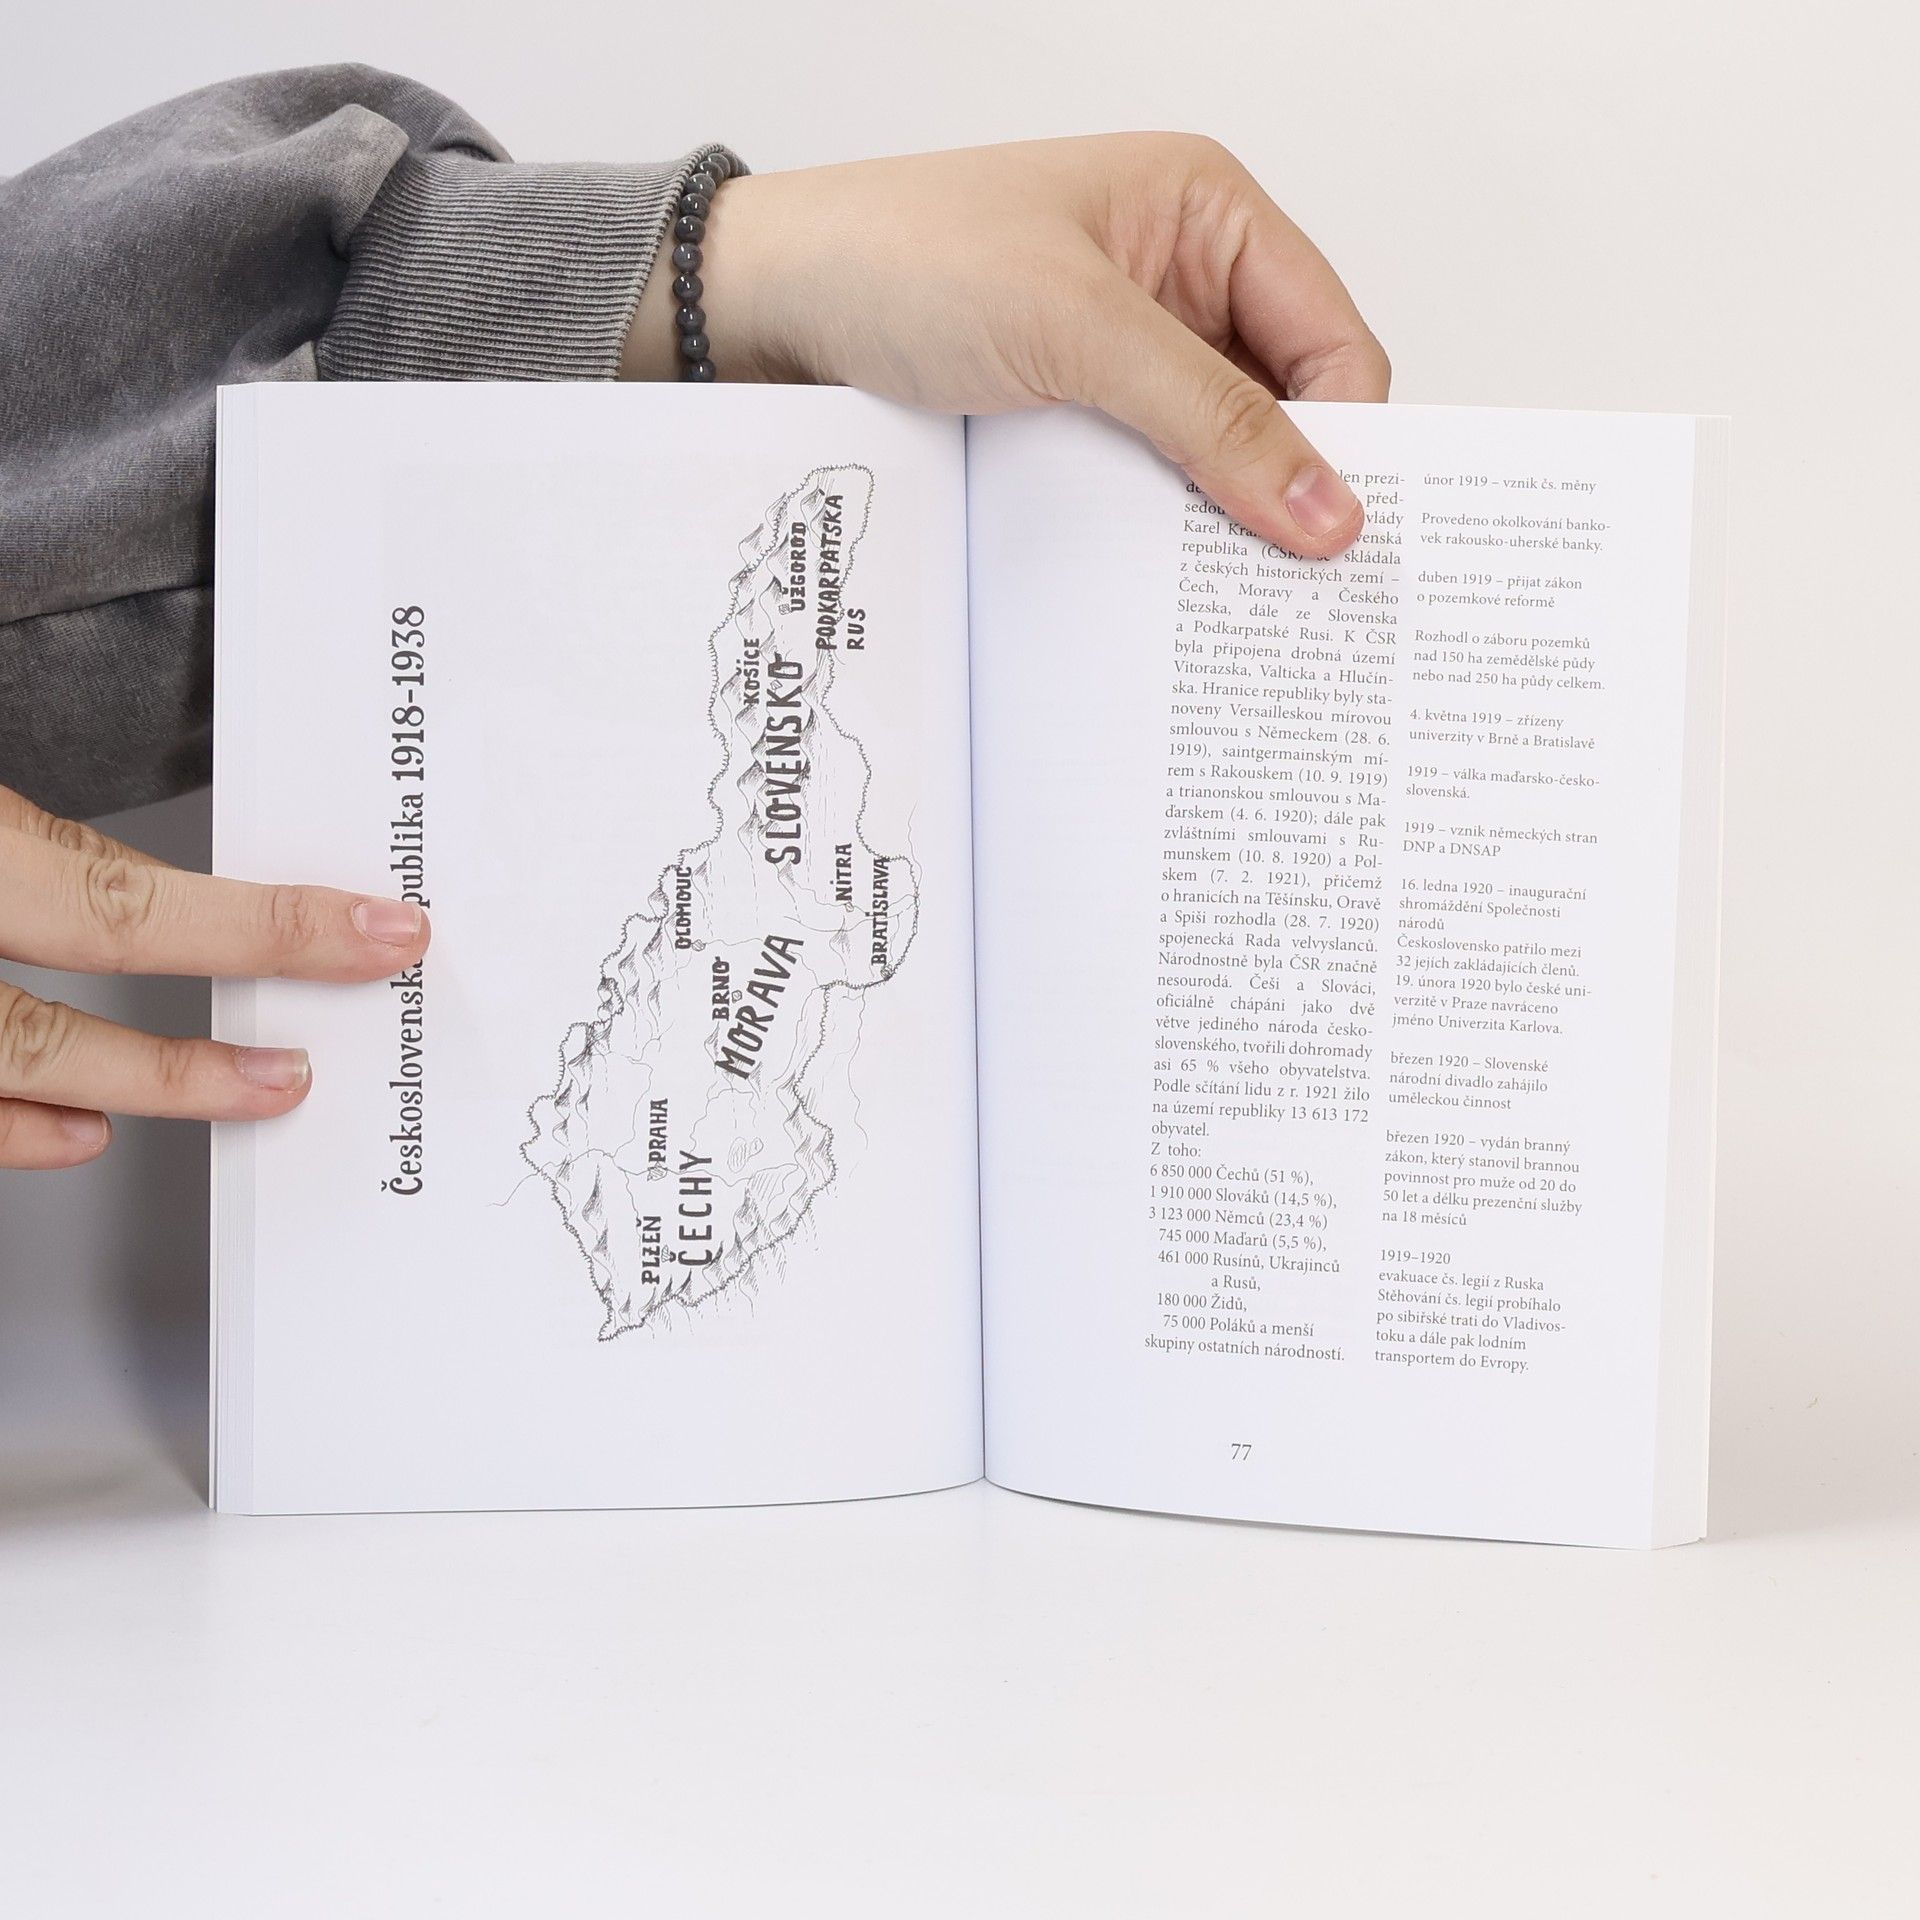 Československá publika 1918–1938
UŽGOROD
PODKARPATSKÁ
RUS
KOŠÍCE
SLOVENSKO
NITRA
BRATISLAVA
OLOMOUC
BRNO
MORAVA
PRAHA
ČECHY
PLZEŇ
prezi-
před-
vlády
Karel
republika (ČSR) se skládala
z českých historických zemí –
Čech, Moravy a Českého
Slezska, dále ze Slovenska
a Podkarpatské Rusi. K ČSR
byla připojena drobná území
Vitorazska, Valticka a Hlučín-
ska. Hranice republiky byly sta-
noveny Versailleskou mírovou
smlouvou s Německem (28. 6.
1919), saintgermainským mí-
rem s Rakouskem (10. 9. 1919)
a trianonskou smlouvou s Ma-
ďarskem (4. 6. 1920); dále pak
zvláštními smlouvami s Ru-
munskem (10. 8. 1920) a Pol-
skem (7. 2. 1921), přičemž
o hranicích na Těšínsku, Oravě
a Spiši rozhodla (28. 7. 1920)
spojenecká Rada velvyslanců.
Národnostně byla ČSR značně
nesourodá. Češi a Slováci,
oficiálně chápáni jako dvě
větve jediného národa česko-
slovenského, tvořili dohromady
asi 65 % všeho obyvatelstva.
Podle sčítání lidu z r. 1921 žilo
na území republiky 13 613 172
obyvatel.
Z toho:
6 850 000 Čechů (51 %),
1 910 000 Slováků (14,5 %),
3 123 000 Němců (23,4 %)
745 000 Maďarů (5,5 %),
461 000 Rusínů, Ukrajinců
a Rusů,
180 000 Židů,
75 000 Poláků a menší
skupiny ostatních národností.
únor 1919 – vznik čs. měny
Provedeno okolkování banko-
vek rakousko-uherské banky.
duben 1919 – přijat zákon
o pozemkové reformě
Rozhodl o záboru pozemků
nad 150 ha zemědělské půdy
nebo nad 250 ha půdy celkem.
4. května 1919 – zřízeny
univerzity v Brně a Bratislavě
1919 – válka maďarsko-česko-
slovenská.
1919 – vznik německých stran
DNP a DNSAP
16. ledna 1920 – inaugurační
shromáždění Společnosti
národů
Československo patřilo mezi
32 jejích zakládajících členů.
19. února 1920 bylo české uni-
verzitě v Praze navráceno
jméno Univerzita Karlova.
březen 1920 – Slovenské
národní divadlo zahájilo
uměleckou činnost
březen 1920 – vydán branný
zákon, který stanovil brannou
povinnost pro muže od 20 do
50 let a délku prezenční služby
na 18 měsíců
1919–1920
evakuace čs. legií z Ruska
Stěhování čs. legií probíhalo
po sibiřské trati do Vladivos-
toku a dále pak lodním
transportem do Evropy.
77